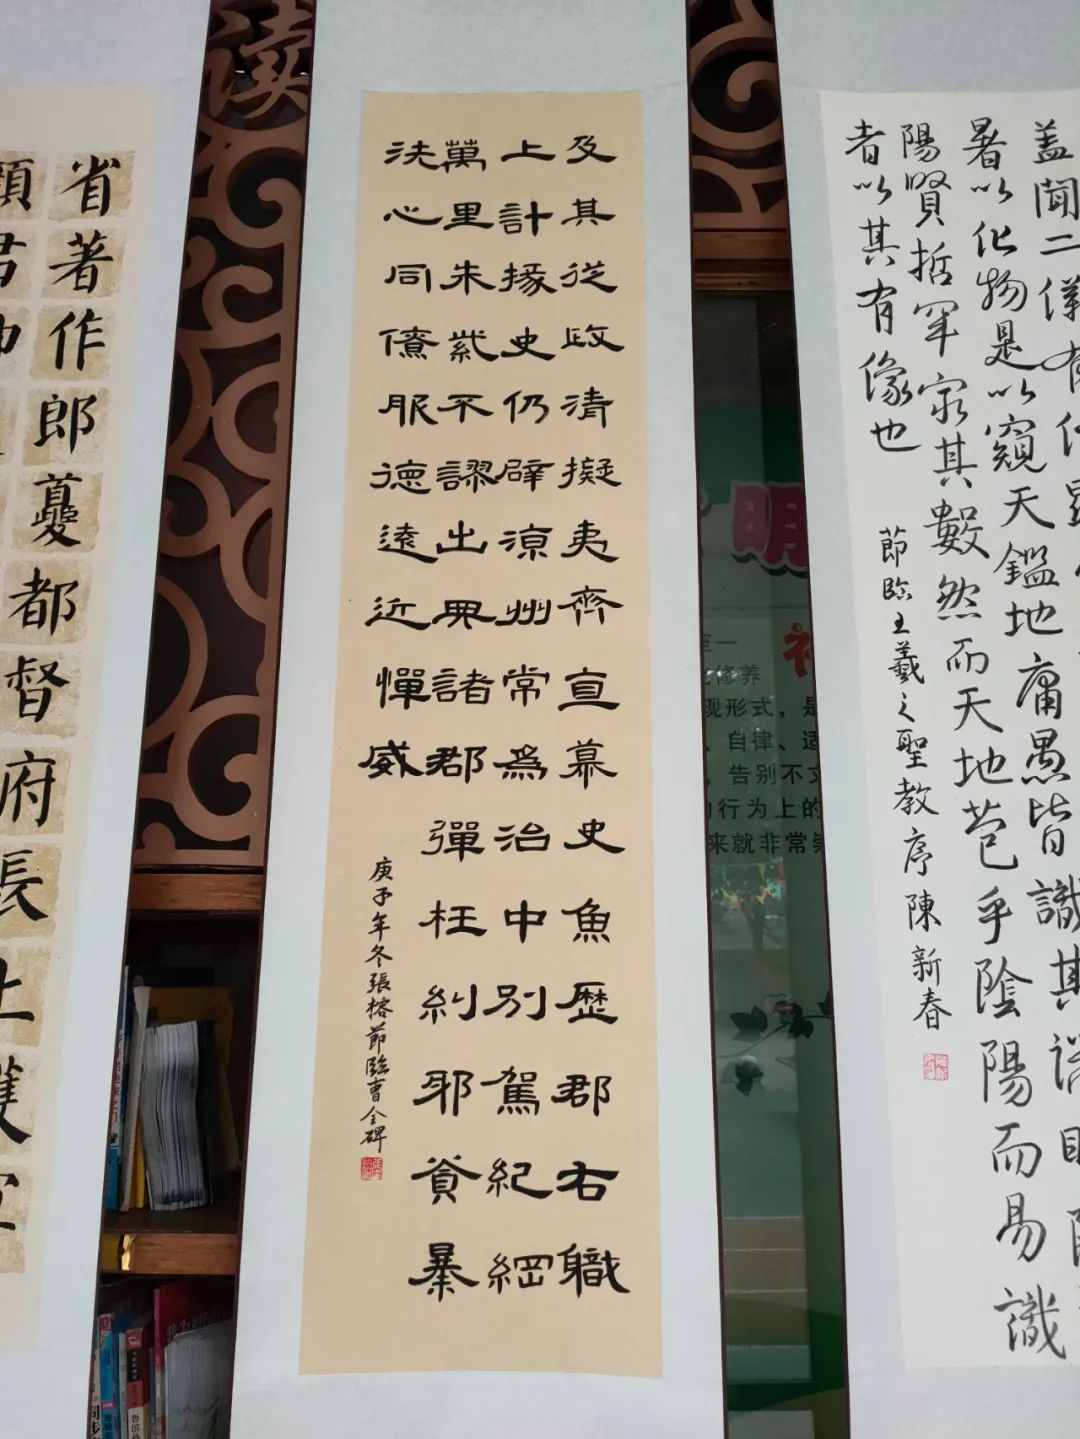 盖聞二儀有
暑以化物是以窺天鑑地庸愚皆識其
陽賢哲罕窮其數然而天地苞乎陰陽而易識
者以其有像也
節臨王羲之聖教序陳新春
及其從政清擬夷齊直慕史魚歷郡右職
上計掾史仍辟涼州常爲治中別駕紀綱
萬里朱紫不謬出典諸郡彈枉糾邪貪暴
洗心同僚服德遠近憚威
庚子年冬張榕節臨曹全碑
省著作郎夔都督府長上護
顏君
读
明
修养
现形式，是
自律、适
，告别不文
行为上的
来就非常崇
同步